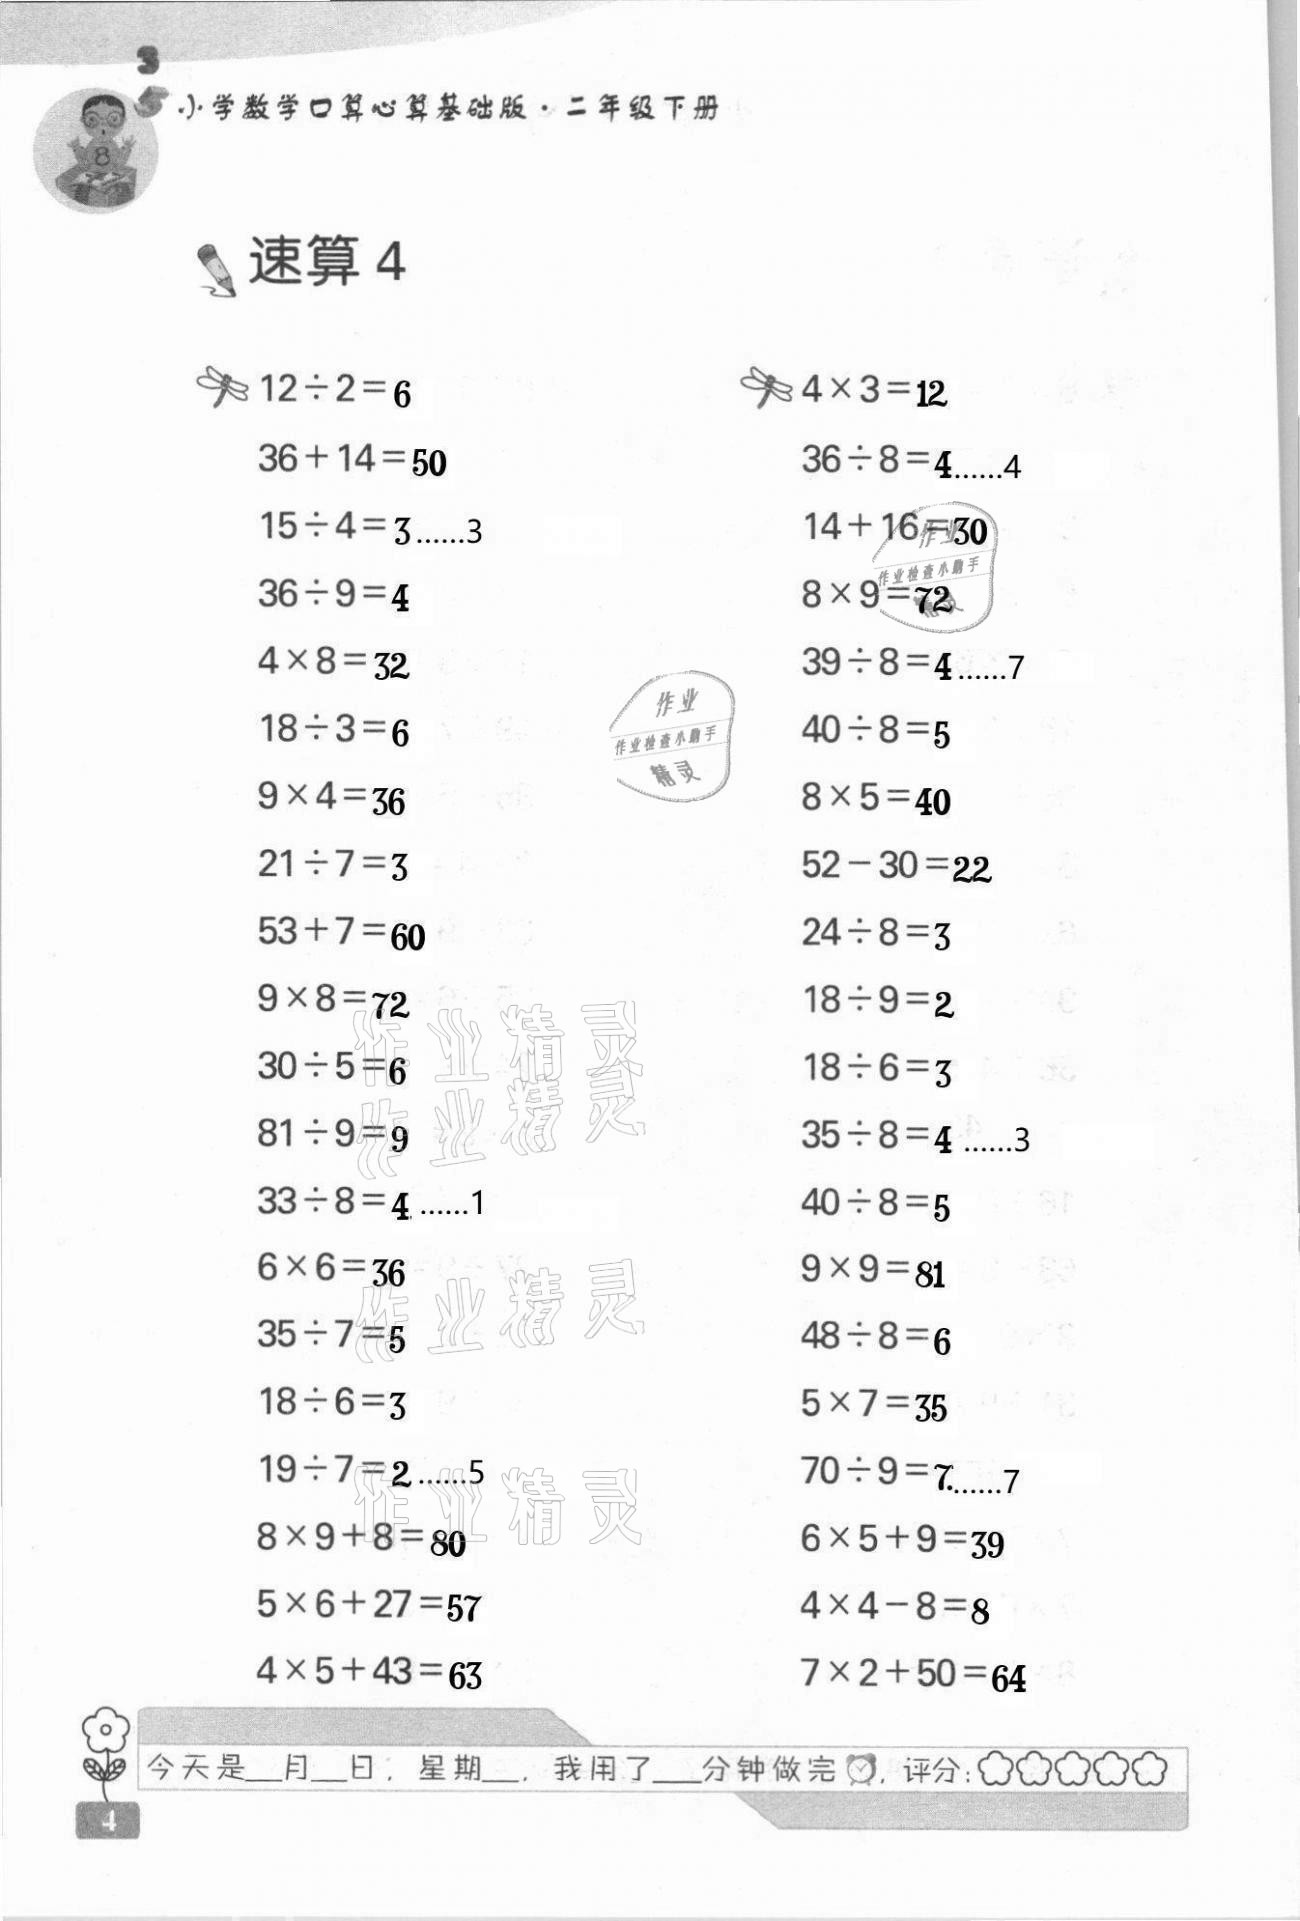 3
5 小学数学口算心算基础版·二年级下册
8
速算 4
12÷2=6
36+14=50
15÷4=3……3
36÷9=4
4×8=32
18÷3=6
9×4=36
21÷7=3
53+7=60
9×8=72
30÷5=6
81÷9=9
33÷8=4……1
6×6=36
35÷7=5
18÷6=3
19÷7=2……5
8×9+8=80
5×6+27=57
4×5+43=63
4×3=12
36÷8=4……4
14+16=30
8×9=72
39÷8=4……7
40÷8=5
8×5=40
52-30=22
24÷8=3
18÷9=2
18÷6=3
35÷8=4……3
40÷8=5
9×9=81
48÷8=6
5×7=35
70÷9=7……7
6×5+9=39
4×4-8=8
7×2+50=64
作业
作业检查小助手
精灵
作业
作业检查小助手
精灵
作业精灵
作业精灵
作业精灵
作业精灵
今天是__月__日，星期__，我用了___分钟做完，评分：
4